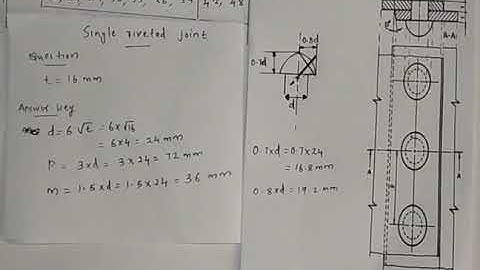 42, 48
Single riveted joint
Question
t = 16 mm
Answer key
d = 6 √t = 6 x √16
= 6 x 4 = 24 mm
P = 3 x d = 3 x 24 = 72 mm
m = 1.5 x d = 1.5 x 24 = 36 mm
0.8d
0.7d
d
0.7 x d = 0.7 x 24
= 16.8 mm
0.8 x d = 19.2 mm
A-A
A
A